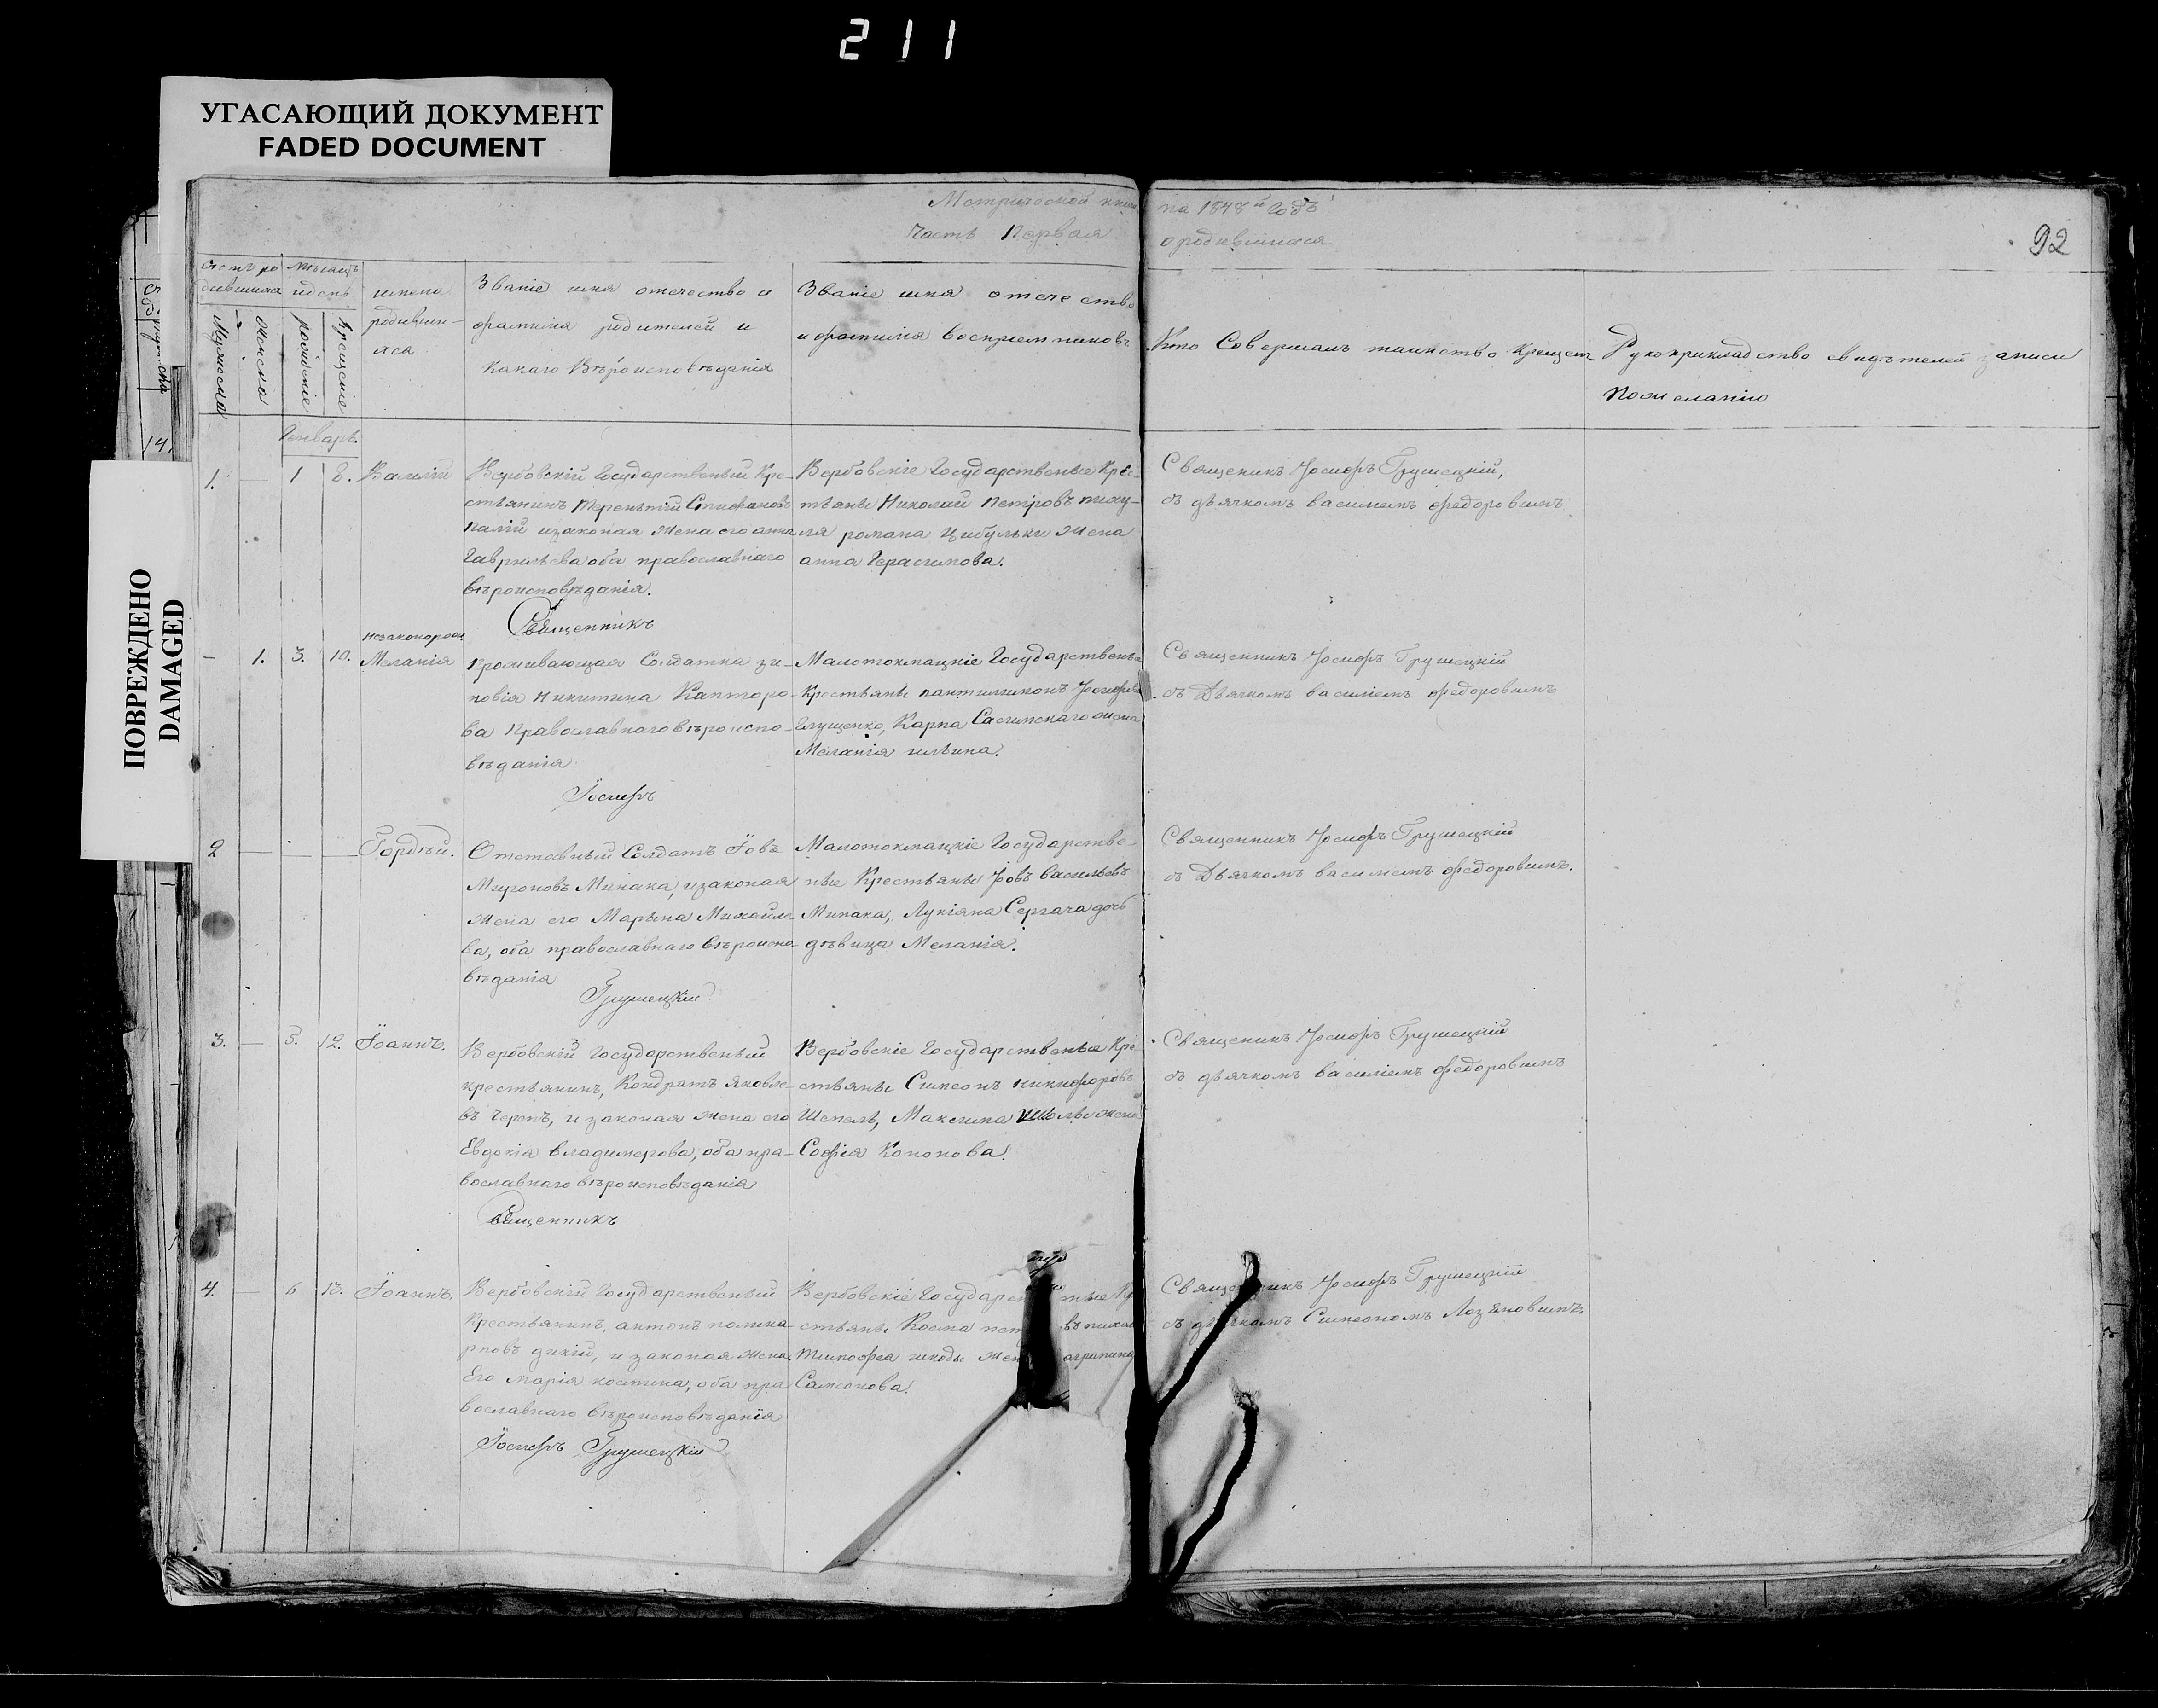 211
УГАСАЮЩИЙ ДОКУМЕНТ
FADED DOCUMENT
ПОВРЕЖДЕНО
DAMAGED
92
Метрической книги на 1848й годъ
Часть Первая о родившихся
Мѣсяцъ
и день
Мужеска
Женска
рожденіе
Крещеніе
имена
родивши-
хся
Званіе имя отечество и
фамилія родителей и
Какаго Вѣроисповѣданія
Званіе имя отечество
и фамилія Воспріемниковъ
Кто Совершалъ таинство Крещен
Рукоприкладство Свидѣтелей записи
По желанію
Генварь.
1. 1 8. Василій
Вербовскій Государственый Кре-
стьянинъ Терентій
законая Жена его анна
Гаврилѣва оба православнаго
вѣроисповѣданія.
Священникъ
Вербовскіе Государственые Кре-
Николай Петровъ
романа Цибульки Жена
анна Герасимова.
Священикъ Іосифъ Грушецкій,
съ дьячкомъ василіемъ федоровымъ.
1. 3. 10.
Меланія
проживающая Солдатка зи-
новія Никитина Канторо-
ва Православнаго вѣроиспо-
вѣданія
Іосифъ
Малотокмацкіе Государственые
Крестьяне пантилимонъ Іосифовъ
Глущенко, Карпа Жена
Меланія ильина.
Священникъ Іосифъ Грушецкій
съ Дьячкомъ василіемъ федоровымъ
2 Гордѣй.
Отставный Солдатъ Іовъ
Мироновъ Минака, изаконая
Жена его Марѣна Михайло-
ва, оба православнаго вѣроиспо-
вѣданія
Грушецкій
Малотокмацкіе Государстве-
ные Крестьяне Іовъ васильевъ
Минака, Лукіяна Сергача дочь
дѣвица Меланія.
Священникъ Іосифъ Грушецкій
съ Дьячкомъ василіемъ федоровымъ.
3. 5. 12. Іоаннъ.
Вербовскій Государственый
крестьянинъ, Кондратъ яковле-
въ Черепъ, и законая жена его
Евдокія владимерова, оба пра-
вославнаго вѣроисповѣданія
Священникъ
Вербовскіе Государственые Кре-
стьяне Симеонъ никифоровъ
Шепель, Максима жена
Софія Кононова.
Священикъ Іосифъ Грушецкій
съ дьячкомъ василіемъ федоровымъ
4. 6 13. Іоаннъ.
Вербовскій Государственый
Крестьянинъ, антонъ полика-
рповъ дикій, и законая жена
Его марія костина, оба пра
вославнаго вѣроисповѣданія
Іосифъ Грушецкій
Вербовскіе
стьяне Косма
Тимофея шкоды агрипина
Самсонова.
Іосифъ Грушецкій
съ Симеономъ Лозановымъ